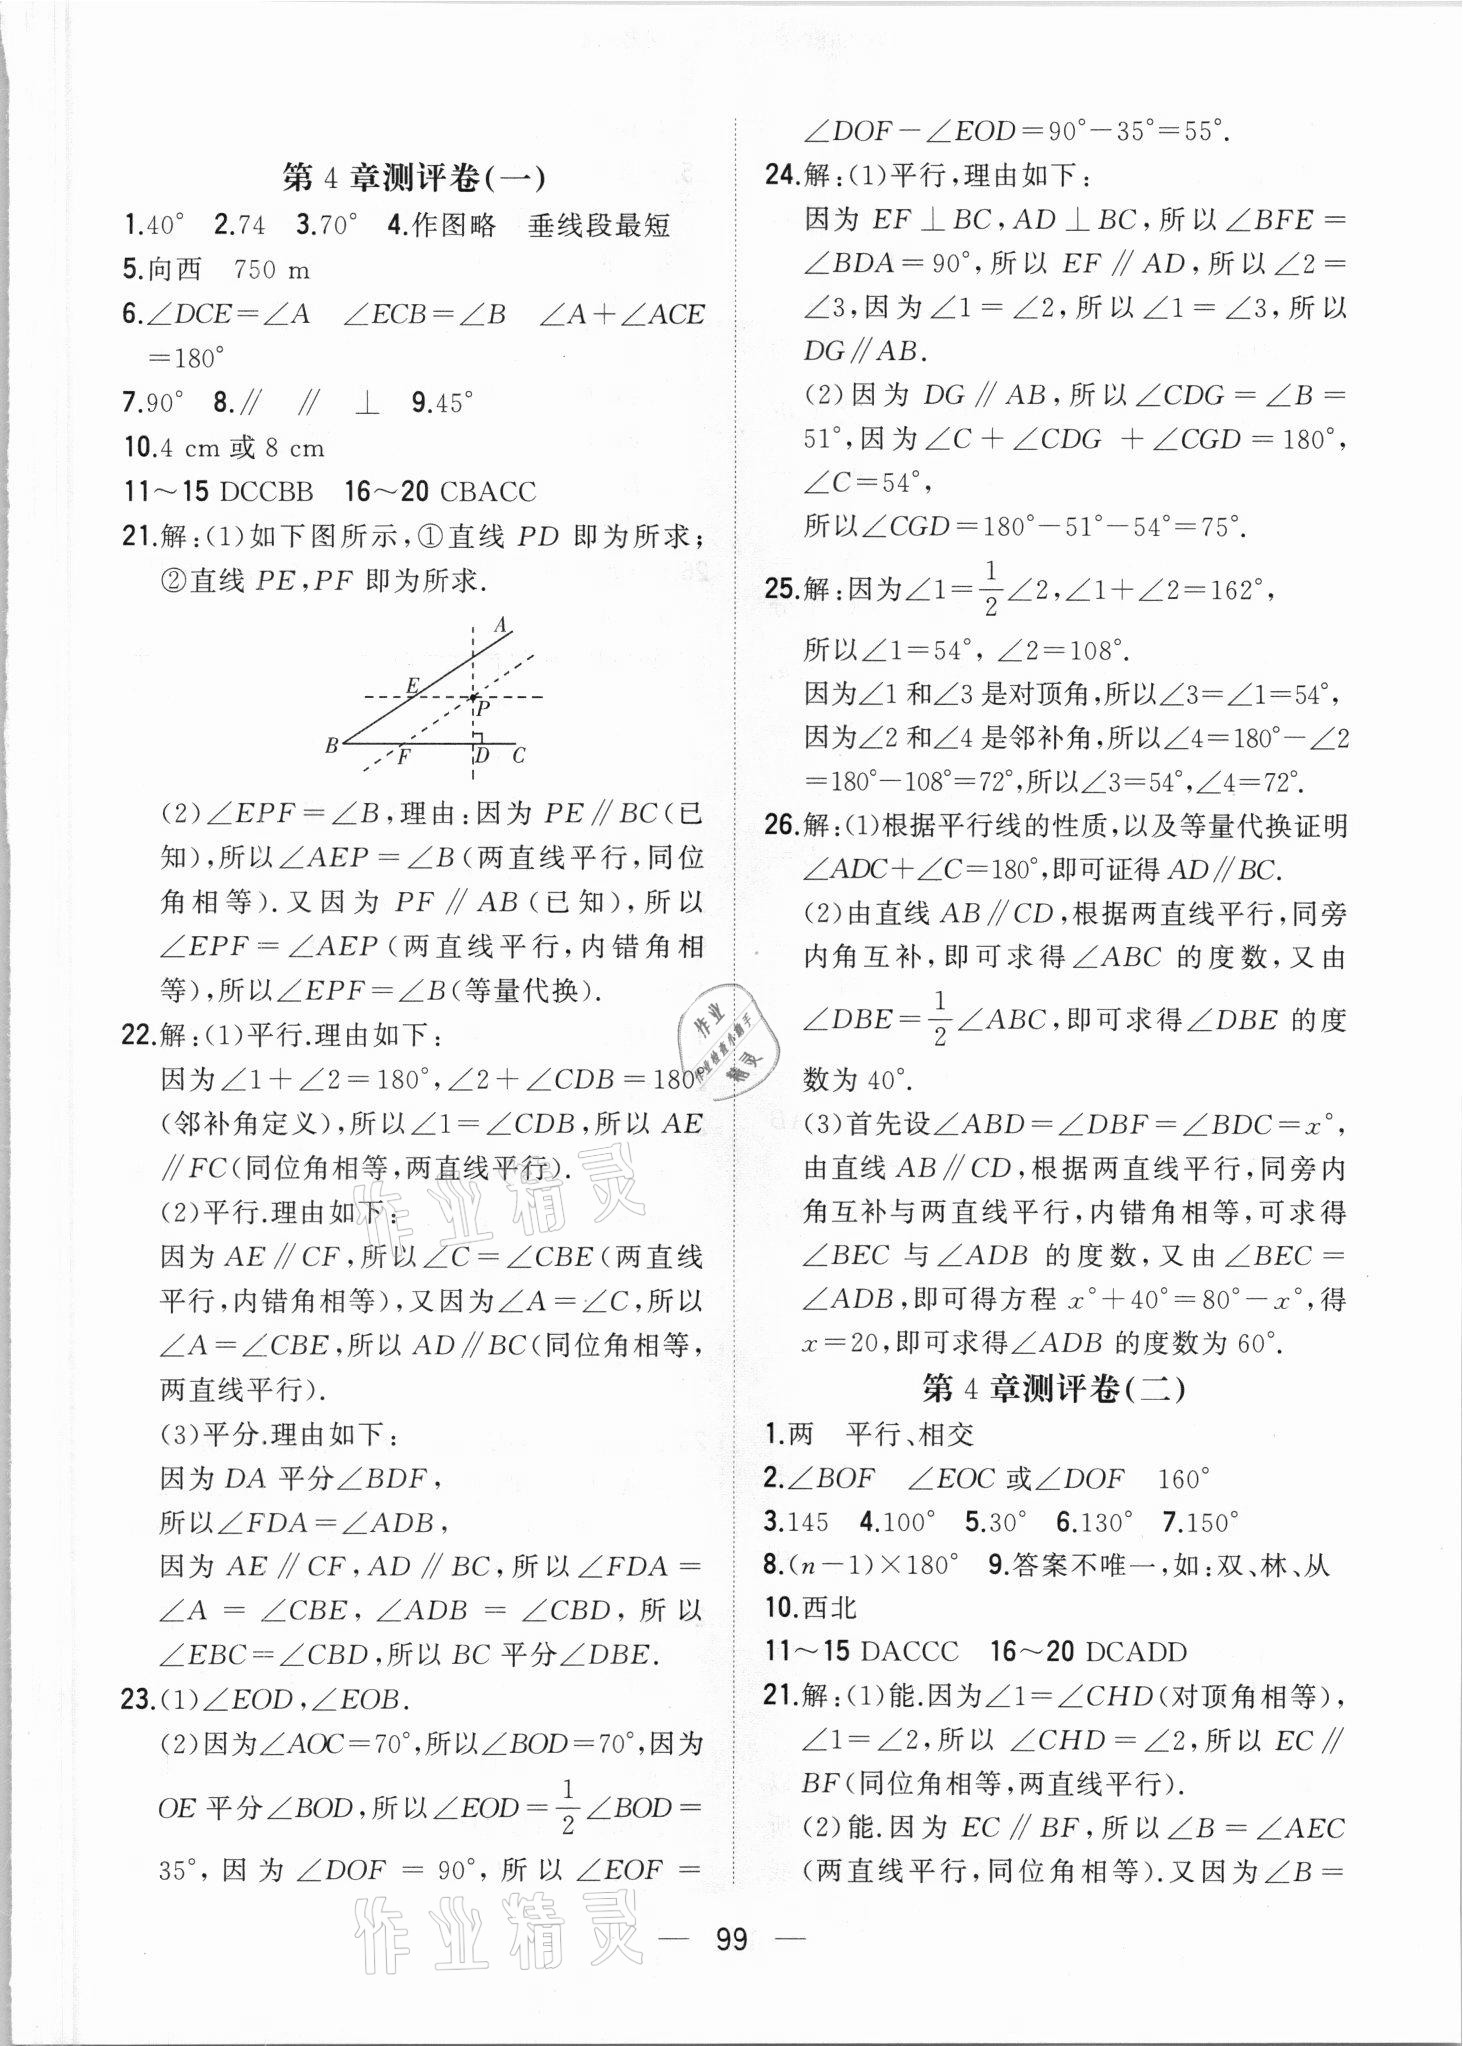 第 4 章测评卷(一)
1.40°　2.74　3.70°　4.作图略　垂线段最短
5.向西　750 m
6.∠DCE=∠A　∠ECB=∠B　∠A+∠ACE
=180°
7.90°　8.∥　∥　⊥　9.45°
10.4 cm 或 8 cm
11～15 DCCBB　16～20 CBACC
21.解:(1)如下图所示,①直线 PD 即为所求;
②直线 PE,PF 即为所求.
A
E
P
B
F
D
C
(2)∠EPF=∠B,理由:因为 PE∥BC(已
知),所以∠AEP=∠B(两直线平行,同位
角相等).又因为 PF∥AB(已知),所以
∠EPF=∠AEP(两直线平行,内错角相
等),所以∠EPF=∠B(等量代换).
22.解:(1)平行.理由如下:
因为∠1+∠2=180°,∠2+∠CDB=180°
(邻补角定义),所以∠1=∠CDB,所以 AE
∥FC(同位角相等,两直线平行).
(2)平行.理由如下:
因为 AE∥CF,所以∠C=∠CBE(两直线
平行,内错角相等),又因为∠A=∠C,所以
∠A=∠CBE,所以 AD∥BC(同位角相等,
两直线平行).
(3)平分.理由如下:
因为 DA 平分∠BDF,
所以∠FDA=∠ADB,
因为 AE∥CF,AD∥BC,所以∠FDA=
∠A=∠CBE,∠ADB=∠CBD,所以
∠EBC=∠CBD,所以 BC 平分∠DBE.
23.(1)∠EOD,∠EOB.
(2)因为∠AOC=70°,所以∠BOD=70°,因为
OE 平分∠BOD,所以∠EOD=1/2∠BOD=
35°,因为∠DOF=90°,所以∠EOF=
∠DOF-∠EOD=90°-35°=55°.
24.解:(1)平行,理由如下:
因为 EF⊥BC,AD⊥BC,所以∠BFE=
∠BDA=90°,所以 EF∥AD,所以∠2=
∠3,因为∠1=∠2,所以∠1=∠3,所以
DG∥AB.
(2)因为 DG∥AB,所以∠CDG=∠B=
51°,因为∠C+∠CDG+∠CGD=180°,
∠C=54°,
所以∠CGD=180°-51°-54°=75°.
25.解:因为∠1=1/2∠2,∠1+∠2=162°,
所以∠1=54°,∠2=108°.
因为∠1 和∠3 是对顶角,所以∠3=∠1=54°,
因为∠2 和∠4 是邻补角,所以∠4=180°-∠2
=180°-108°=72°,所以∠3=54°,∠4=72°.
26.解:(1)根据平行线的性质,以及等量代换证明
∠ADC+∠C=180°,即可证得 AD∥BC.
(2)由直线 AB∥CD,根据两直线平行,同旁
内角互补,即可求得∠ABC 的度数,又由
∠DBE=1/2∠ABC,即可求得∠DBE 的度
数为 40°.
(3)首先设∠ABD=∠DBF=∠BDC=x°,
由直线 AB∥CD,根据两直线平行,同旁内
角互补与两直线平行,内错角相等,可求得
∠BEC 与∠ADB 的度数,又由∠BEC=
∠ADB,即可得方程 x°+40°=80°-x°,得
x=20,即可求得∠ADB 的度数为 60°.
第 4 章测评卷(二)
1.两　平行、相交
2.∠BOF　∠EOC 或∠DOF　160°
3.145　4.100°　5.30°　6.130°　7.150°
8.(n-1)×180°　9.答案不唯一,如:双、林、从
10.西北
11～15 DACCC　16～20 DCADD
21.解:(1)能.因为∠1=∠CHD(对顶角相等),
∠1=∠2,所以∠CHD=∠2,所以 EC∥
BF(同位角相等,两直线平行).
(2)能.因为 EC∥BF,所以∠B=∠AEC
(两直线平行,同位角相等).又因为∠B=
— 99 —
作业
作业检查小助手
精灵
作业精灵
作业精灵